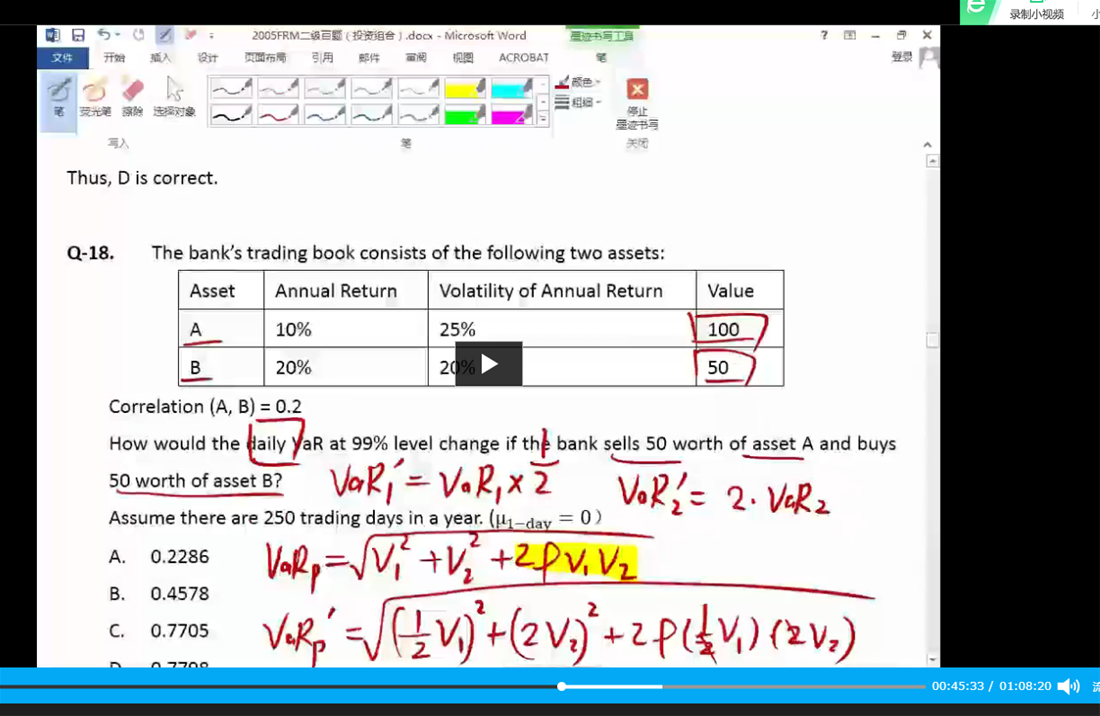 录制小视频 小
2005FRM二级百题（投资组合）.docx - Microsoft Word 墨迹书写工具 ?
文件 开始 插入 设计 页面布局 引用 邮件 审阅 视图 ACROBAT 笔 登录
笔 荧光笔 擦除 选择对象 颜色 粗细 停止
墨迹书写
写入 笔 关闭
Thus, D is correct.
Q-18. The bank's trading book consists of the following two assets:
Asset Annual Return Volatility of Annual Return Value
A 10% 25% 100
B 20% 20% 50
Correlation (A, B) = 0.2
How would the daily VaR at 99% level change if the bank sells 50 worth of asset A and buys
50 worth of asset B?
VaR₁′ = VaR₁ × 1/2 VaR₂′ = 2 · VaR₂
Assume there are 250 trading days in a year. (μ1−day = 0 )
A. 0.2286
VaRp = √(V₁² + V₂² + 2ρV₁V₂)
B. 0.4578
C. 0.7705
VaRp′ = √((1/2 V₁)² + (2V₂)² + 2ρ(1/2 V₁)(2V₂))
D. 0.7798
00:45:33 / 01:08:20 流